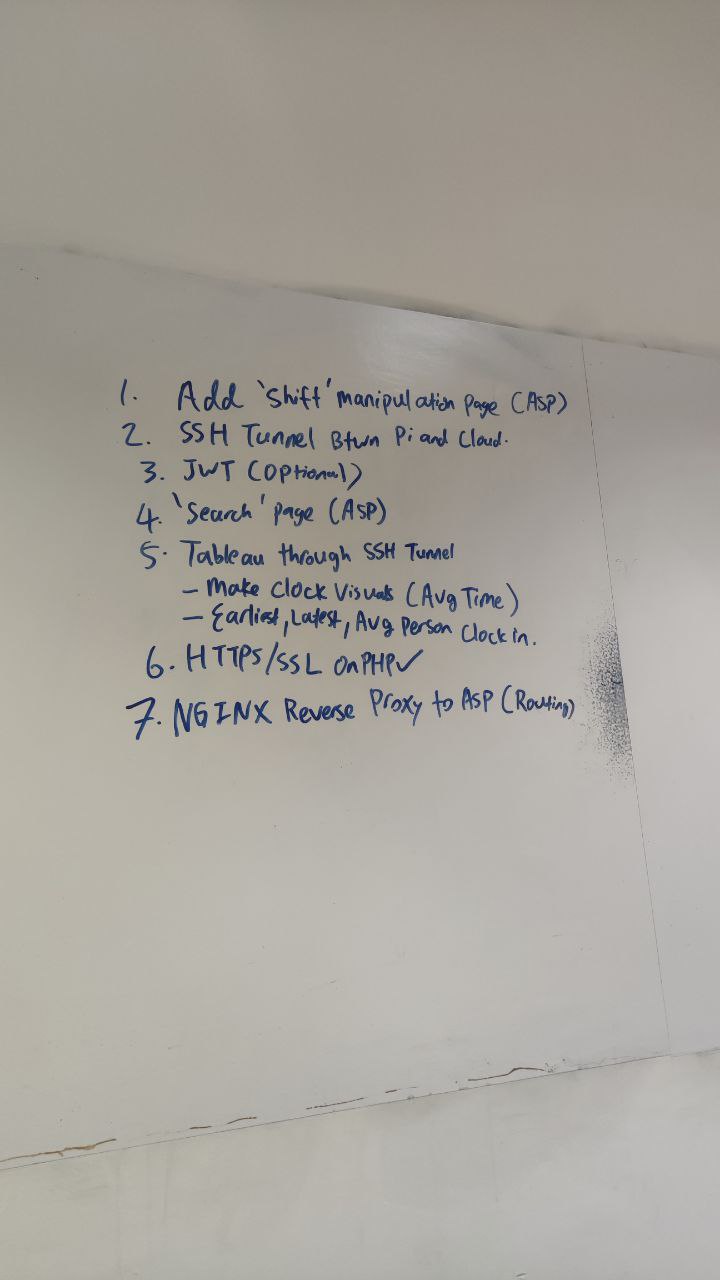 1. Add 'Shift' manipulation Page (ASP)
2. SSH Tunnel Btwn Pi and Cloud.
3. JWT (Optional)
4. 'Search' Page (ASP)
5. Tableau through SSH Tunnel
- Make Clock Visuals (Avg Time)
- Earliest, Latest, Avg Person Clock in.
6. HTTPS/SSL On PHP ✓
7. NGINX Reverse Proxy to ASP (Routing)